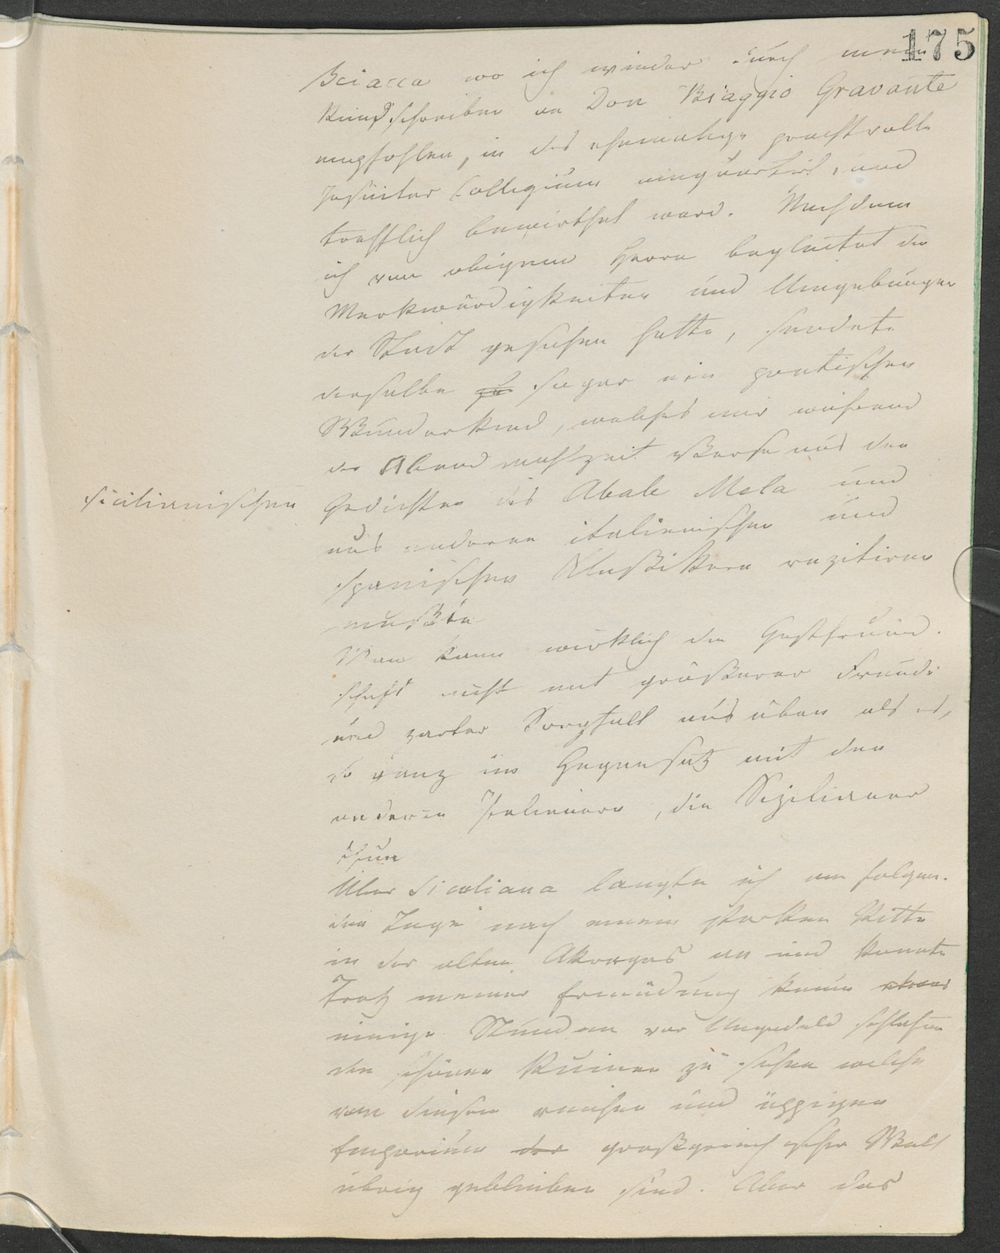 175
Sciacca wo ich wieder durch mein
Rundschreiben an Don Biaggio Gravante
empfohlen, in das ehemalige prachtvolle
Jesuiter Collegium einquartirt und
trefflich bewirthet ward. Nachdem
ich von obigem Herrn begleitet die
Merkwürdigkeiten und Umgebungen
der Stadt gesehen hatte, sendete
derselbe sogar ein poetisches
Wunderkind, welches mir während
der Abendmahlzeit Verse aus den
sicilianischen
Gedichten des Abate Mela und
aus anderen italienischen und
spanischen Klassikern rezitiren
mußte
Man kann wirklich die Gastfreund-
schaft nicht mit größerer Freude
und zarter Sorgfalt ausüben als es,
so ganz im Gegensatz mit den
anderen Italienern, die Sizilianer
thun
Über Siculiana langte ich am folgen-
den Tage nach einem starken Ritte
in der alten Akragas an und konnte
trotz meiner Ermüdung kaum etwas
einige Stunden vor Ungeduld schlafen
die schönen Ruinen zu sehen welche
von diesem reichen und üppigen
Emporium der großgriechischen Welt
übrig geblieben sind. Aber das